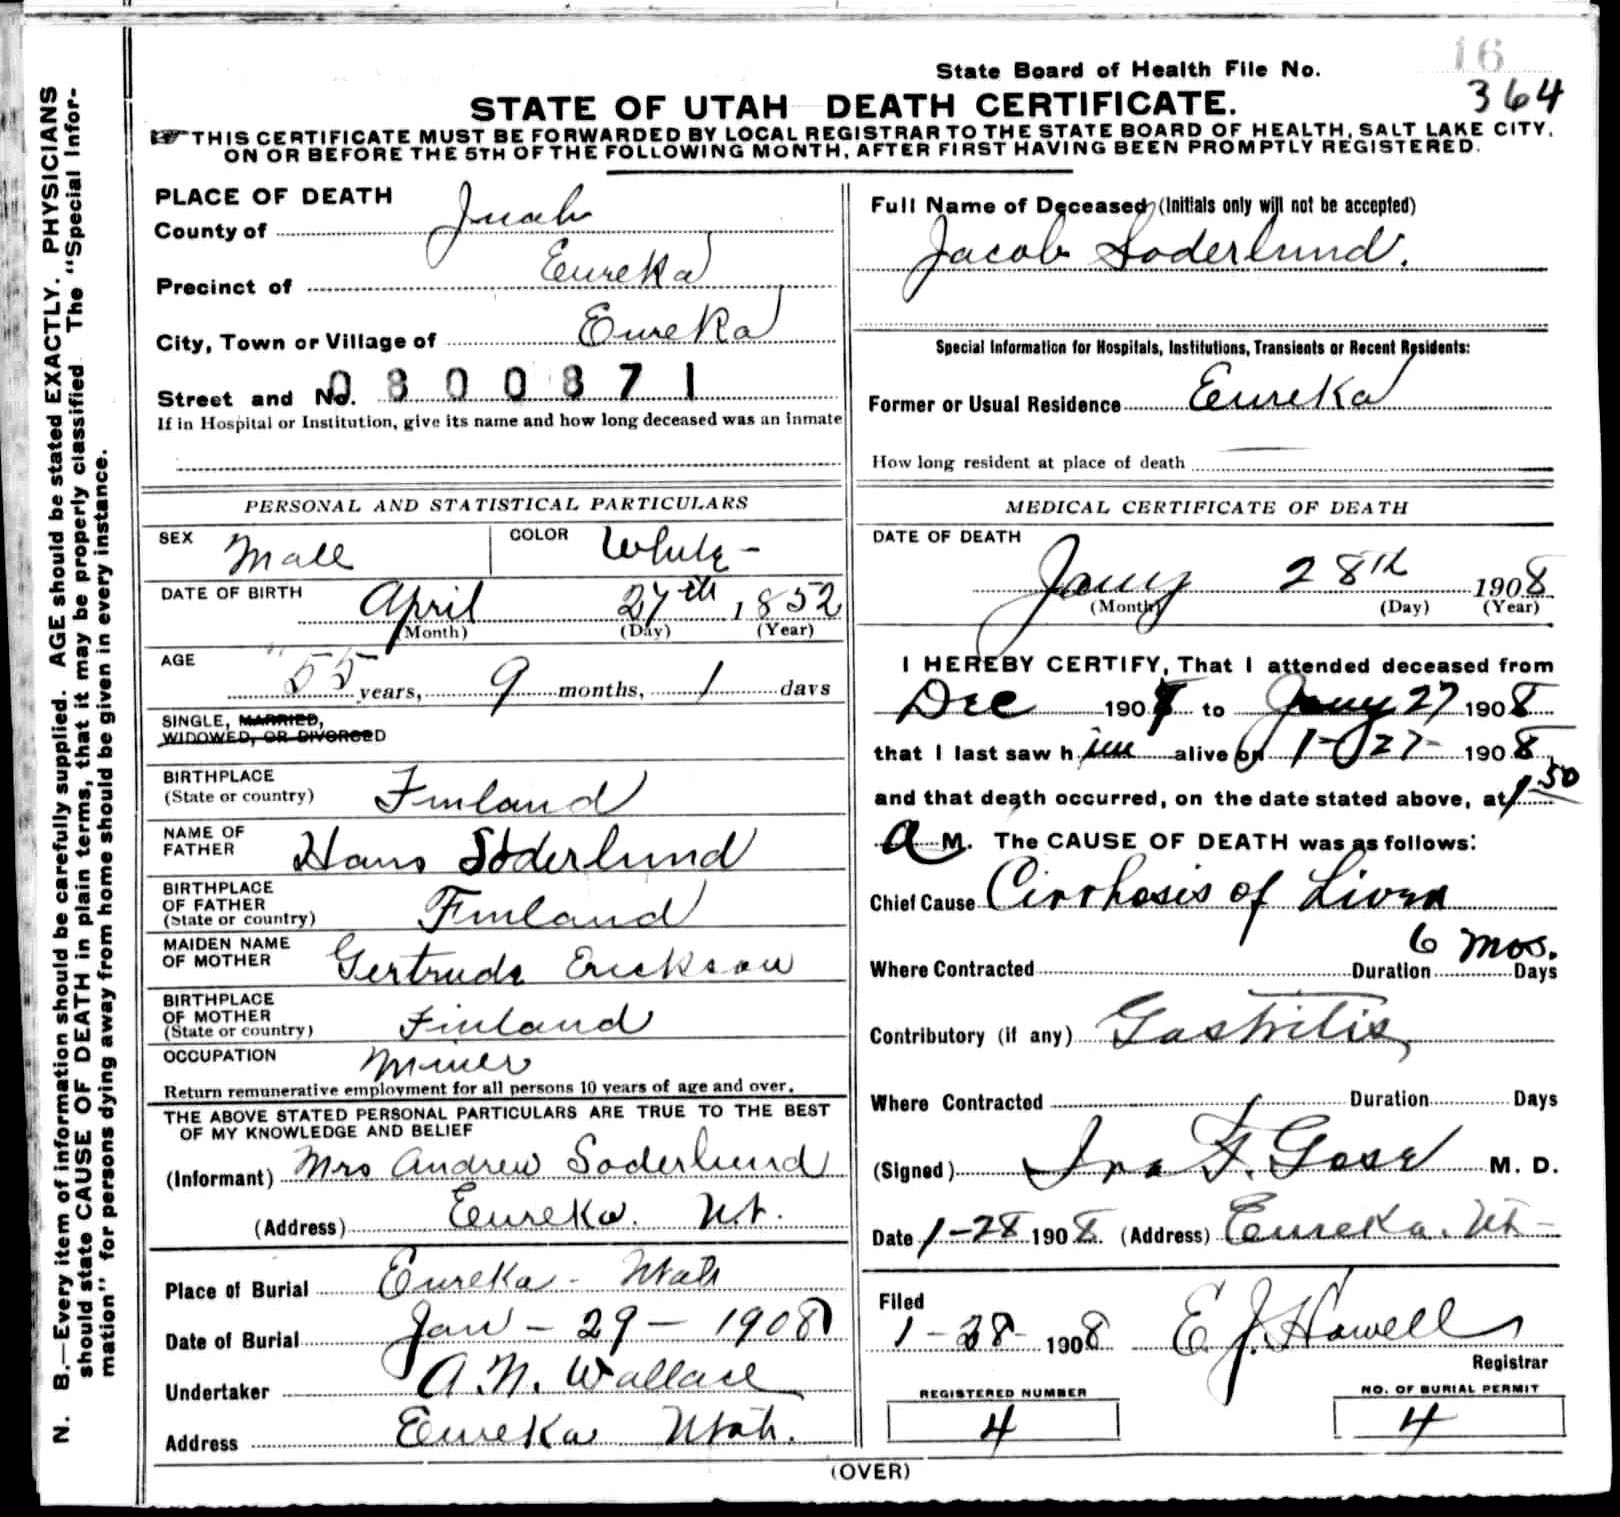 16
State Board of Health File No. 364
STATE OF UTAH DEATH CERTIFICATE.
THIS CERTIFICATE MUST BE FORWARDED BY LOCAL REGISTRAR TO THE STATE BOARD OF HEALTH, SALT LAKE CITY,
ON OR BEFORE THE 5TH OF THE FOLLOWING MONTH, AFTER FIRST HAVING BEEN PROMPTLY REGISTERED.
N. B.—Every item of information should be carefully supplied. AGE should be stated EXACTLY. PHYSICIANS
should state CAUSE OF DEATH in plain terms, that it may be properly classified The "Special Infor-
mation" for persons dying away from home should be given in every instance.
PLACE OF DEATH
County of Juab
Precinct of Eureka
City, Town or Village of Eureka
Street and No. 0800871
If in Hospital or Institution, give its name and how long deceased was an inmate
PERSONAL AND STATISTICAL PARTICULARS
SEX Male COLOR White -
DATE OF BIRTH April 27th 1852
(Month) (Day) (Year)
AGE 55 years, 9 months, 1 days
SINGLE, MARRIED,
WIDOWED, OR DIVORCED
BIRTHPLACE
(State or country) Finland
NAME OF
FATHER Hans Soderlund
BIRTHPLACE
OF FATHER
(State or country) Finland
MAIDEN NAME
OF MOTHER Gertrude Erickson
BIRTHPLACE
OF MOTHER
(State or country) Finland
OCCUPATION Miner
Return remunerative employment for all persons 10 years of age and over.
THE ABOVE STATED PERSONAL PARTICULARS ARE TRUE TO THE BEST
OF MY KNOWLEDGE AND BELIEF
(Informant) Mrs Andrew Soderlund
(Address) Eureka. Ut.
Place of Burial Eureka - Utah
Date of Burial Jan - 29 - 1908
Undertaker A. N. Wallace
Address Eureka Utah.
Full Name of Deceased (Initials only will not be accepted)
Jacob Soderlund.
Special Information for Hospitals, Institutions, Transients or Recent Residents:
Former or Usual Residence Eureka
How long resident at place of death
MEDICAL CERTIFICATE OF DEATH
DATE OF DEATH
Jany 28th 1908
(Month) (Day) (Year)
I HEREBY CERTIFY, That I attended deceased from
Dec 190 to Jany 27 1908
that I last saw him alive on 1-27- 1908
and that death occurred, on the date stated above, at 1 50
a M. The CAUSE OF DEATH was as follows:
Chief Cause Cirrhosis of Liver
Where Contracted Duration 6 mos. Days
Contributory (if any) Gastritis
Where Contracted Duration Days
(Signed) F. M. D.
Date 1-28 1908. (Address) Eureka. Ut-
Filed
1-28- 1908 E. J. Howell
Registrar
REGISTERED NUMBER
4
NO. OF BURIAL PERMIT
4
(OVER)